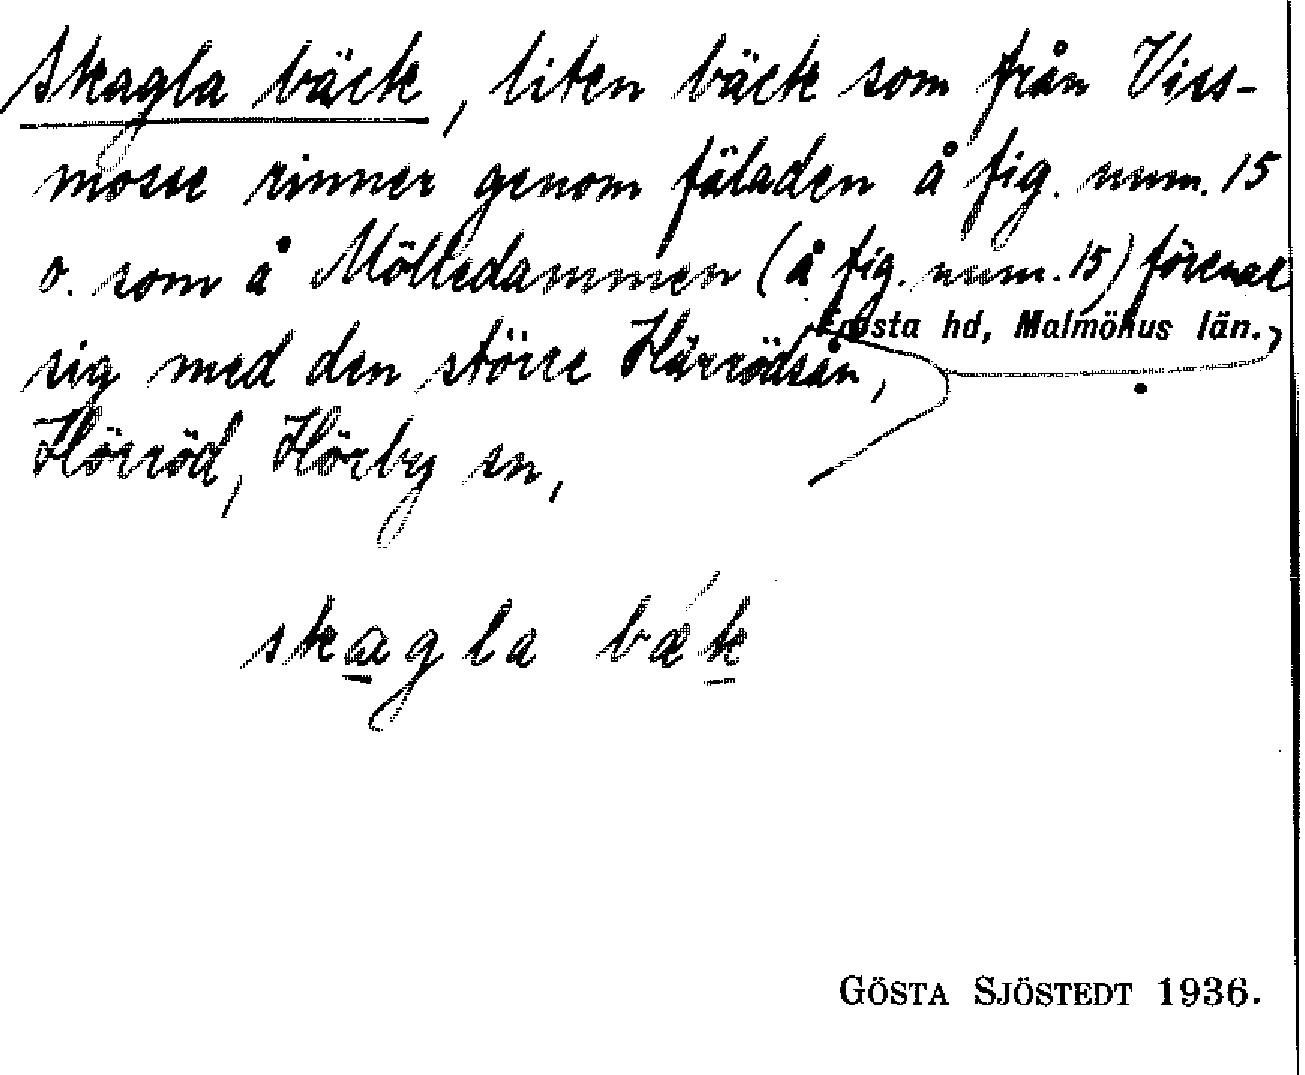 Skagla bäck, liten bäck som från Viss-
mosse rinner genom fäladen å fig. num. 15
o. som å Mölledammen (å fig. num. 15) förenat
sig med den större Härrödsån,
Frosta hd, Malmöhus län.
Hörröd, Hörby sn,
skagla bǽk
GÖSTA SJÖSTEDT 1936.